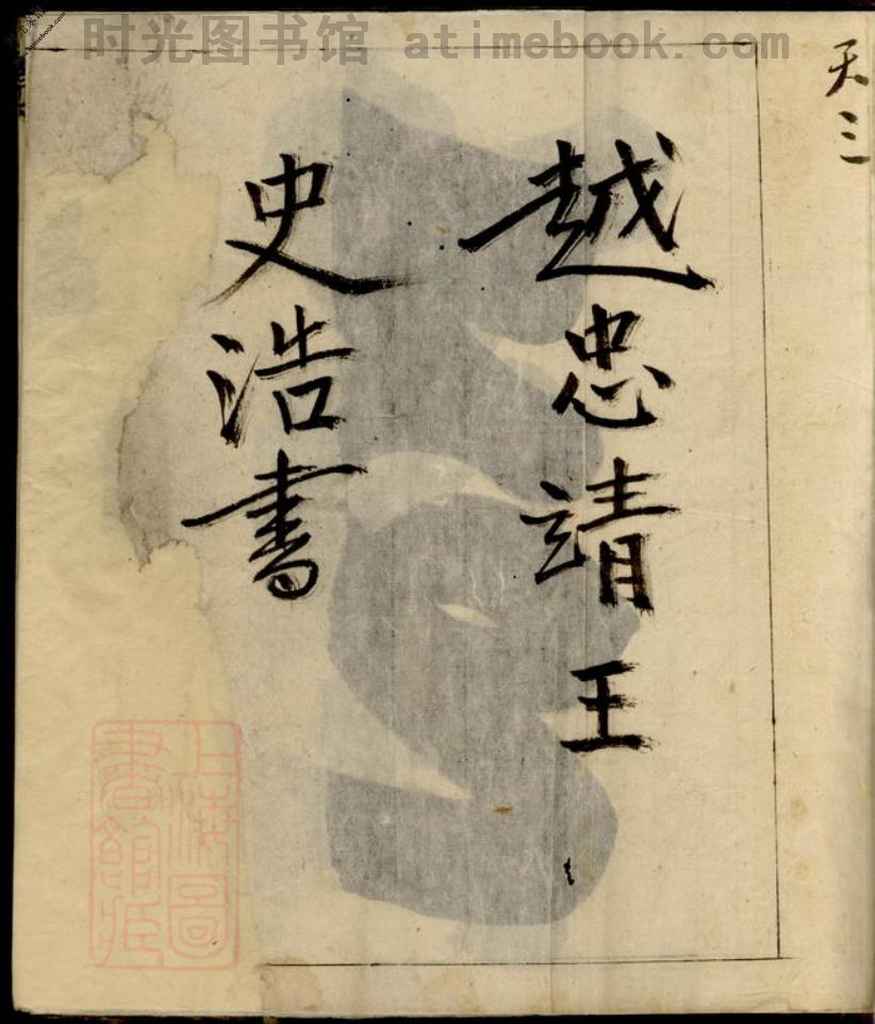 时光图书馆 atimebook.com
天三
越忠靖王
史浩書
上海圖
書館藏